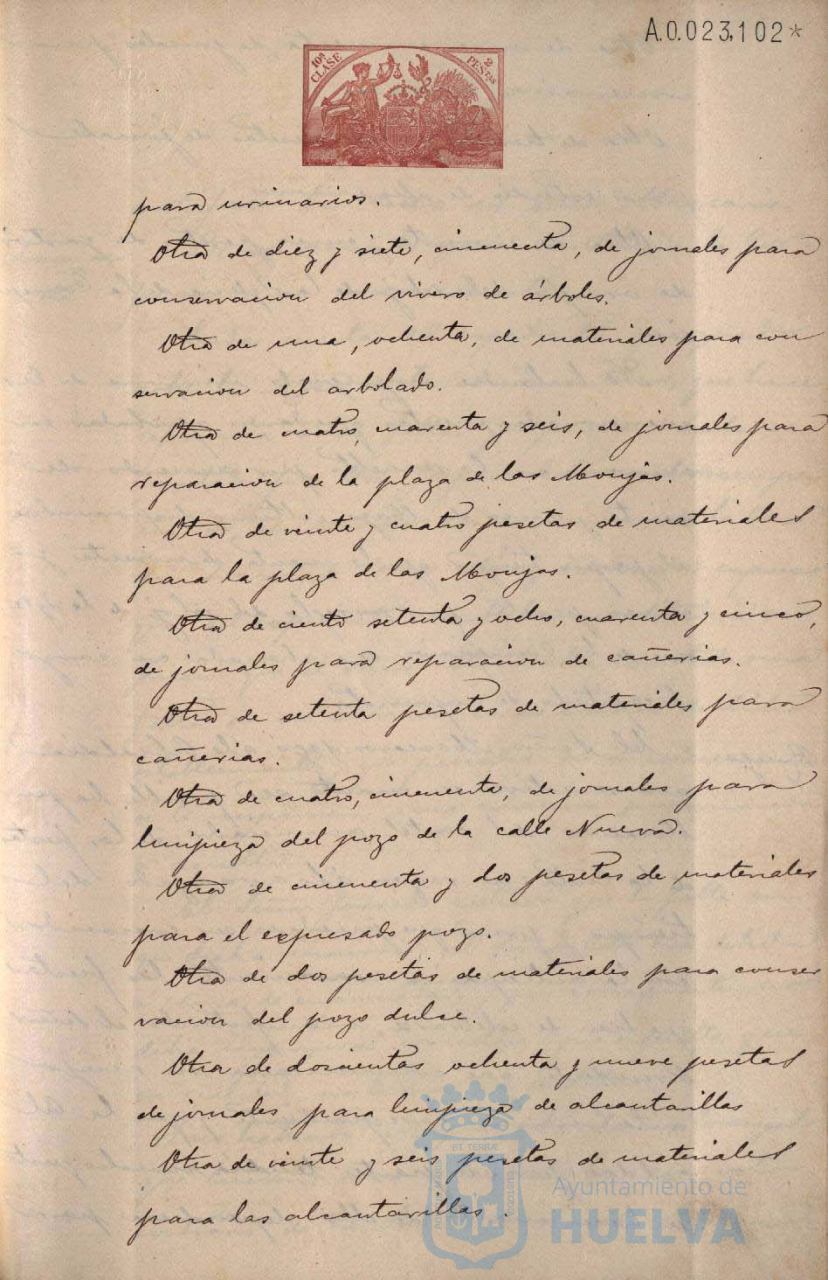 A.0.023,102*
10ª CLASE
2 PESETAS
para urinarios.
Otra de diez y siete, cincuenta, de jornales para
conservacion del vivero de árboles.
Otra de una, ochenta, de materiales para con
servacion del arbolado.
Otra de cuatro, cuarenta y seis, de jornales para
reparacion de la plaza de las Monjas.
Otra de veinte y cuatro pesetas de materiales
para la plaza de las Monjas.
Otra de ciento setenta y ocho, cuarenta y cinco,
de jornales para reparacion de cañerias.
Otra de setenta pesetas de materiales para
cañerias.
Otra de cuatro, cincuenta, de jornales para
limpieza del pozo de la calle Nueva.
Otra de cincuenta y dos pesetas de materiales
para el expresado pozo.
Otra de dos pesetas de materiales para conser
vacion del pozo dulce.
Otra de doscientas ochenta y nueve pesetas
de jornales para limpieza de alcantarillas
Otra de veinte y seis pesetas de materiales
para las alcantarillas.
Ayuntamiento de
HUELVA